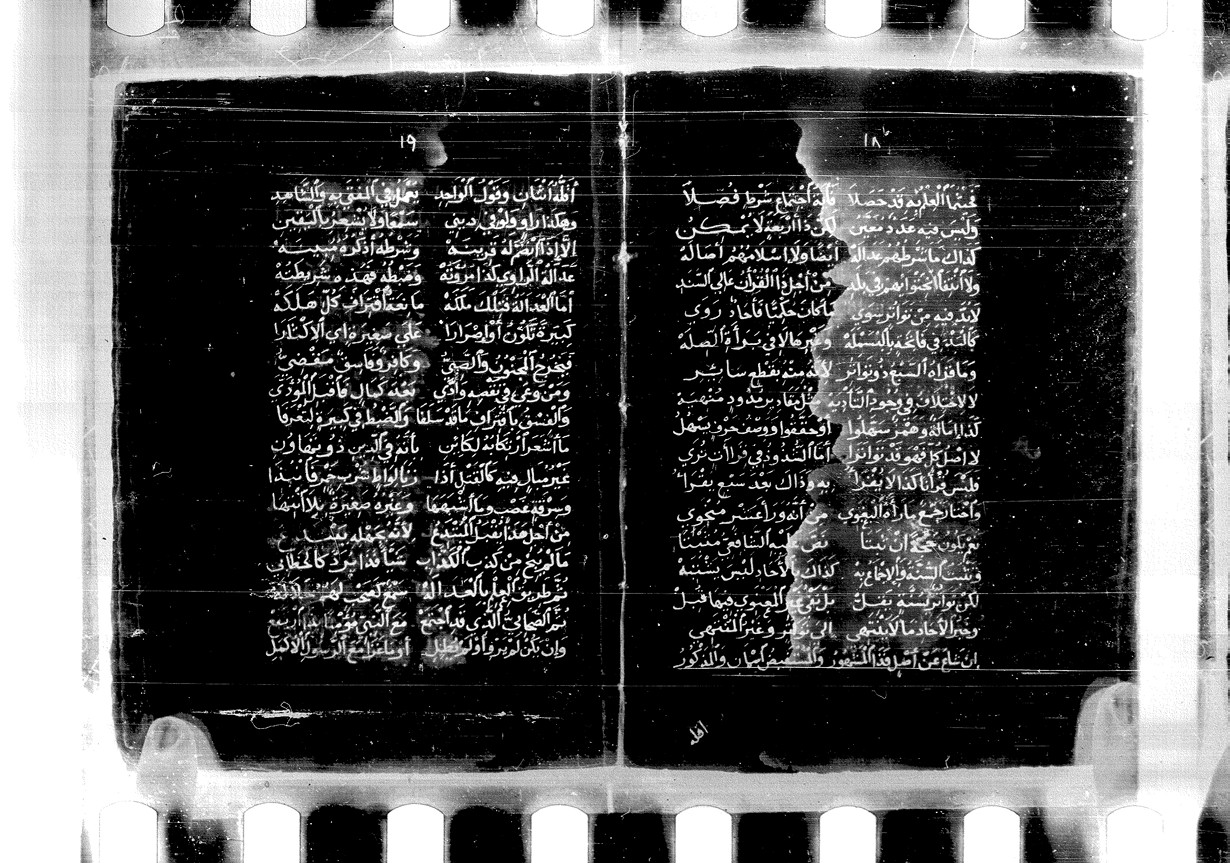 ١٨
فحيثما العلم به قد حصلا فانه اجتماع شرط فصلا
وليس فيه عدد معين لكن ذا اربعة لا يمكن
كذاك ما شرطهم عداله ايضا ولا اسلامهم اصاله
ولا انتفا احتوائهم في بلد من اجل ذا القرآن عالي السند
لابد فيه من تواتر سوي ما كان حكينا فاحاد روي
كالبتة في فاتحة بالبسملة وغيرها لا في براة الصله
وما قراه السبع ذو تواتر لانه منه بقطع سائر
لا لاختلاف في وجوه التأديه
كذا امالة وهمز سهلوا او حققوا ووصف حرف يسهل
لا اصل كل فهو قد تواترا اما الشذوذ في قران نري
فليس قرأنا كذا لا يقرا به وذاك بعد سبع يقرا
واختار جمع ما رآه البغوي من انه ورا عشر محوي
ان ثبتا نص الشافعي مثبتا
وتثبت السنة والاجماع به كذاك بالاحاد ليس يشتبه
لكن تواتر لسنة يقل
وخبر الاحاد ما لا ينتهي الى تواتر وغير المنتهي
ان شاع عن اصل فذا المشهور والمستفيض اسمان والمذكور
اقله
١٩
اقله اثنان وقول الواحد يعمل في الفتوى به والشاهد
وهكذا راو ولو في ديني سمعا ولا يشعر باليقين
الا اذا انضم له قرينه وشرطه اذكره مبينه
عدالة الراوي كذا مروته وضبطه فهذه شريطته
اما العدالة فتلك ملكه مانعة اقتراف كل هلكه
كبيرة تكون او اصرارا على صغيرة اي الاكثارا
فيخرج المجنون والصبي وكافر وفاسق مقضي
ومن وعى في نقصه وادى بعد كمال فاقبل المؤدى
والفسق باقتراف ما قد سلفا والضبط في كبيرة لتعرفا
ما اشعر ارتكابه لكائن بانه في الدين ذو تهاون
غير مبال فيه كالقتل اذا زنا لواط شرب خمر فانبذا
وسرقة غصب وما اشبهها وغيره صغيرة بلا انتها
من اجل هذا يقبل المبتدع لانه بجهله
مالم يبح من كذب الكذاب
ثم طريق العلم بالعداله سمع
ثم الصحابي الذي قد اجتمع مع النبي مؤمنا
وان يكن لم يرو او لم يطل او ما غزا مع الرسول الاكمل